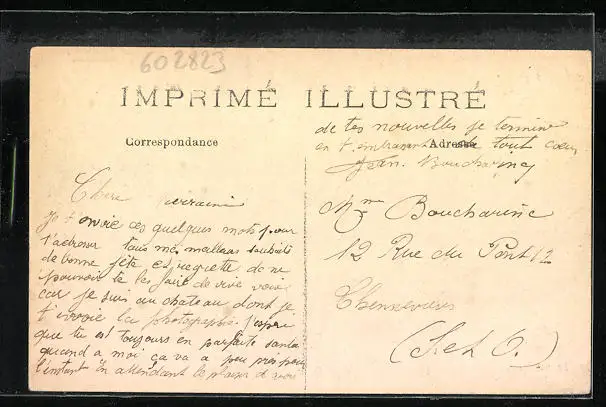 602823
IMPRIMÉ ILLUSTRÉ
Correspondance
Adresse
Chère marraine
Je t'envoie ces quelques mots pour
t'adresser tous mes meilleurs souhaits
de bonne fête et regrette de ne
pouvoir te les faire de vive voix
car je suis au chateau dont je
t'envoie la photographie. J'espère
que tu est toujours en parfaite santé
quand a moi ça va a peu près pour
l'instant En attendant le plaisir d'avoir
de tes nouvelles je termine
en t'embrassant de tout cœur
Jean. Boucharine
Mme Boucharine
12 Rue du Pont 12
Chennevières
(S et O.)